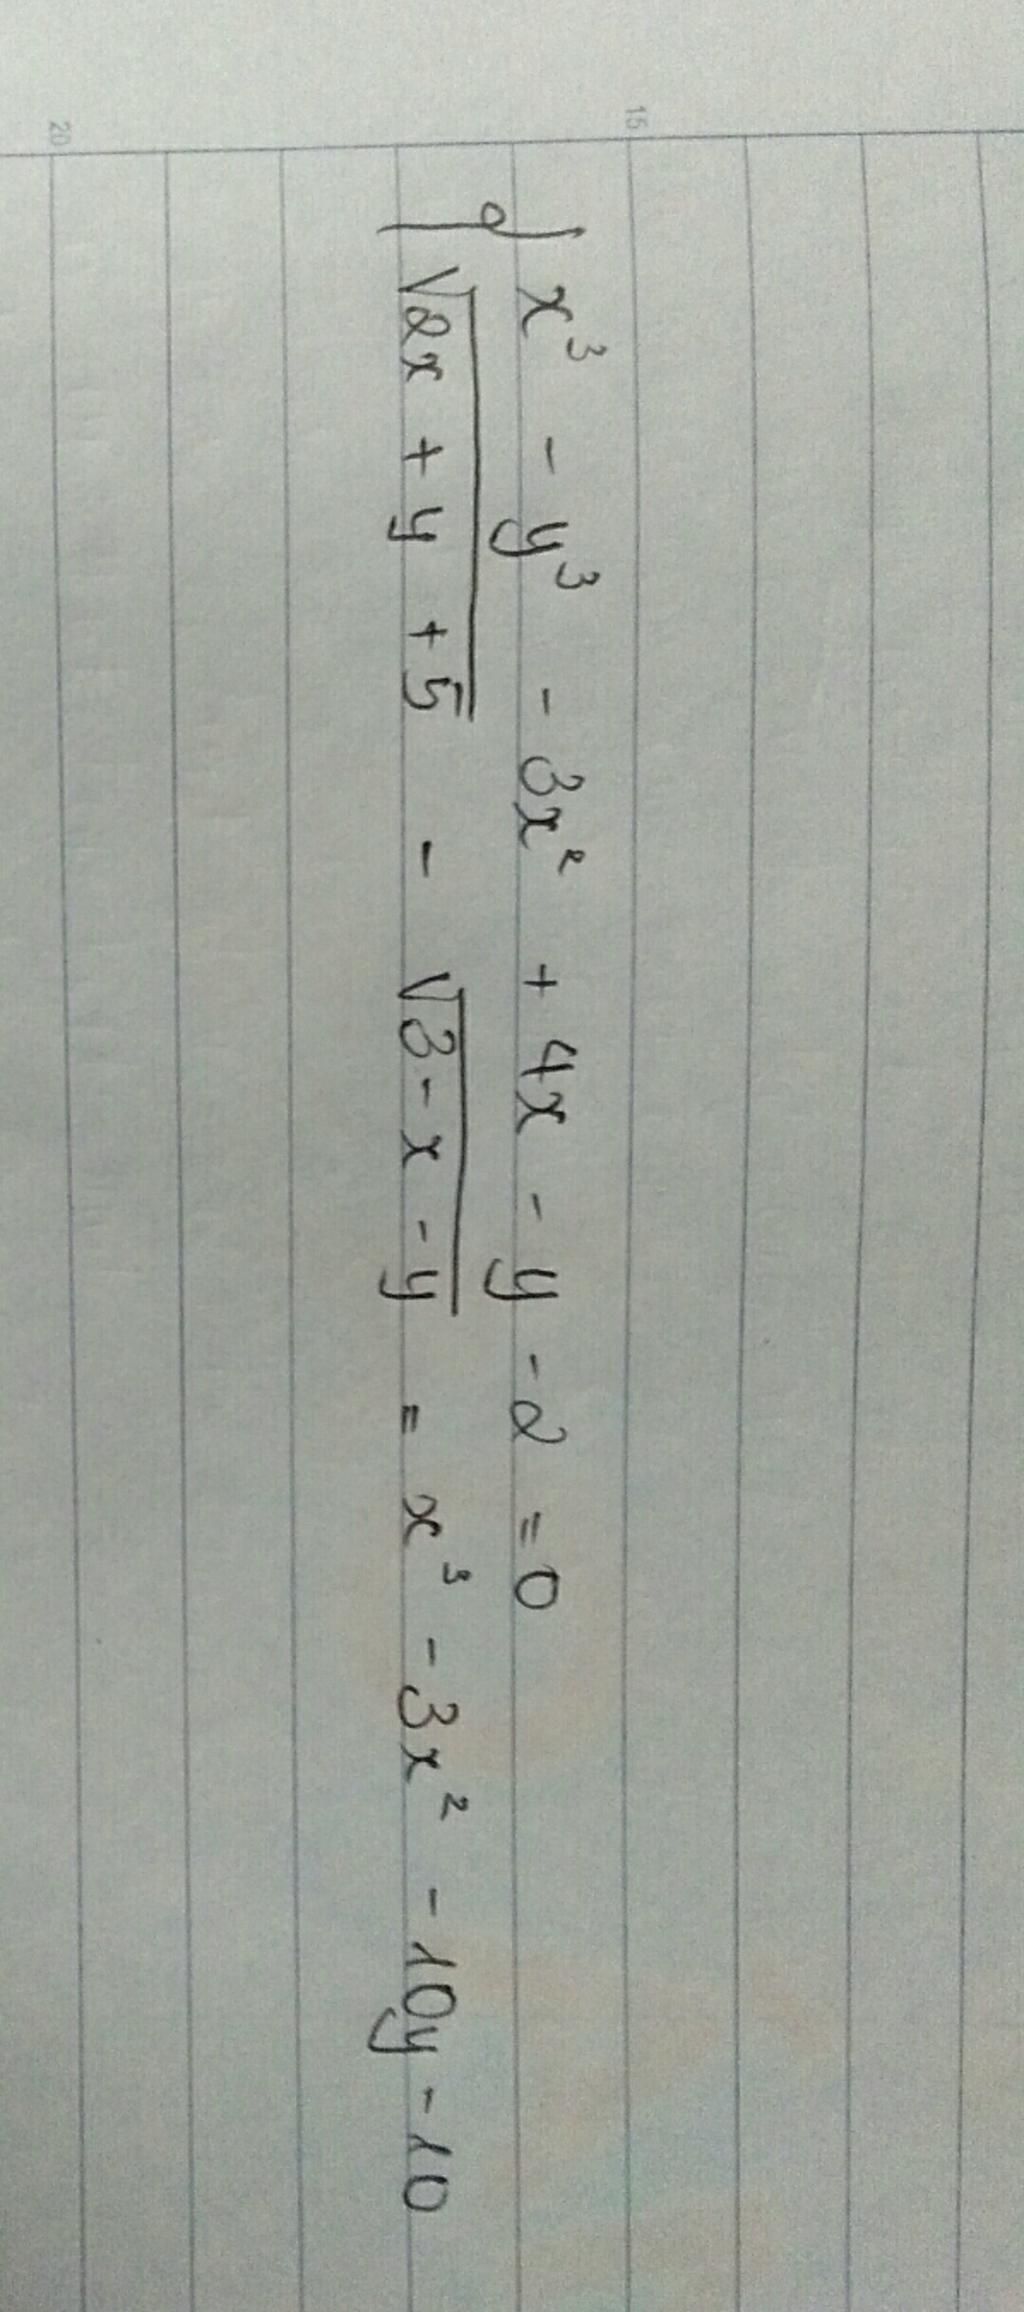 15
x³ - y³ - 3x² + 4x - y - 2 = 0
√2x + y + 5 - √3 - x - y = x³ - 3x² - 10y - 10
20